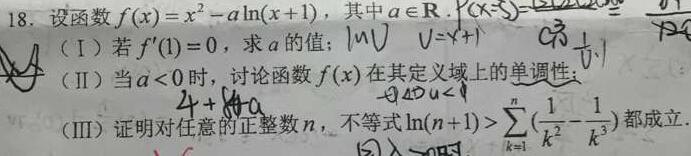 18. 设函数 f(x)=x²-aln(x+1)，其中 a∈R.
（Ⅰ）若 f′(1)=0，求 a 的值；lnU U=x+1
（Ⅱ）当 a<0 时，讨论函数 f(x) 在其定义域上的单调性；
4+8a
（Ⅲ）证明对任意的正整数 n，不等式 ln(n+1)>∑_{k=1}^{n}(1/k²-1/k³) 都成立.